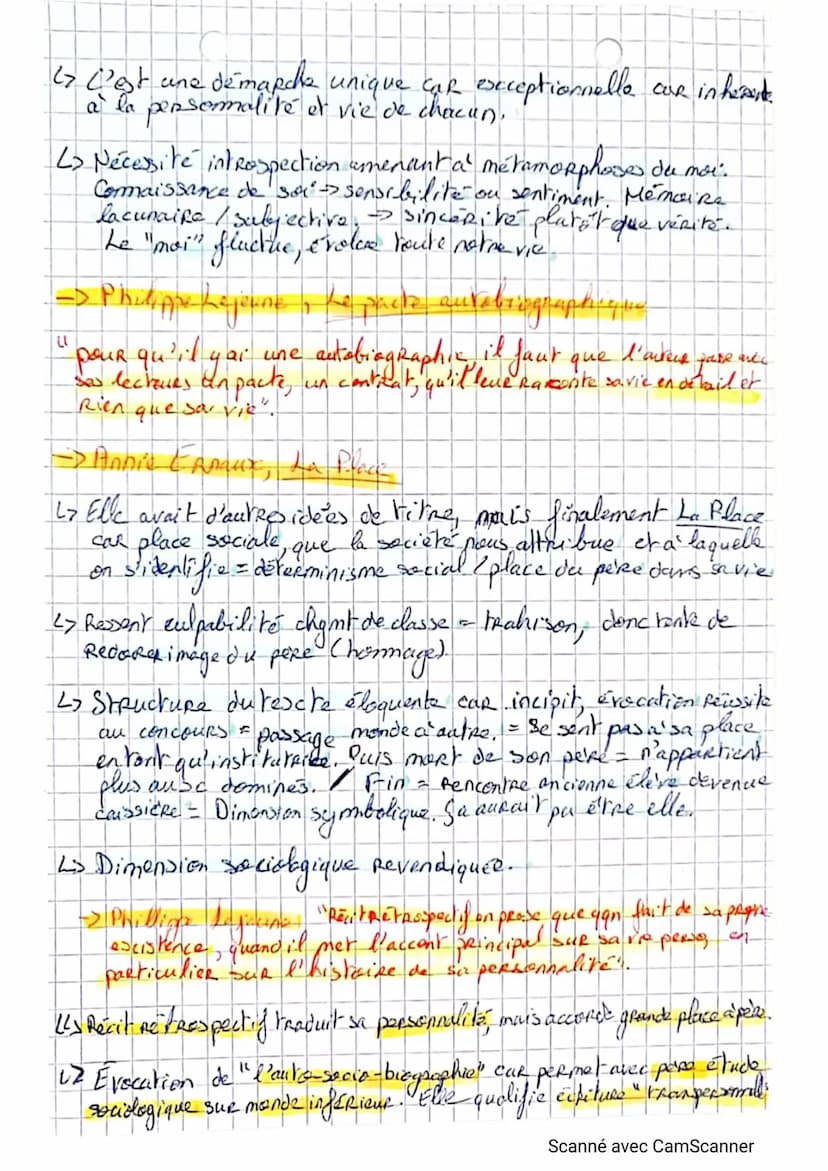 ↳ C'est une démarche unique car exceptionnelle car inhérente
à la personnalité et vie de chacun.
↳ Nécessité introspection amenant à métamorphoses du moi.
Connaissance de soi → sensibilité ou sentiment. Mémoire
lacunaire / subjective. → sincérité plutôt que vérité.
Le "moi" fluctue, évolue toute notre vie
→ Philippe Lejeune, Le pacte autobiographique
"pour qu'il y ai une autobiographie, il faut que l'auteur passe avec
ses lecteurs un pacte, un contrat, qu'il leur raconte sa vie en détail et
Rien que sa vie".
→ Annie Ernaux, La Place
↳ Elle avait d'autres idées de titre, mais finalement La Place
car place sociale, que la société nous attribue et à laquelle
on s'identifie = déterminisme social / place du père dans sa vie
↳ Ressent culpabilité chgmt de classe = trahison, donc tente de
Redorer image du père (hommage).
↳ Structure du texte éloquente car incipit, évocation réussite
au concours = passage monde à autre. = Se sent pas à sa place
en tant qu'institutrice. Puis mort de son père = n'appartient
plus aux dominés. / Fin = Rencontre ancienne élève devenue
caissière = Dimension symbolique. Ça aurait pu être elle.
↳ Dimension sociologique revendiquée.
→ Phillipe Lejeune: "Récit rétrospectif en prose que qqn fait de sa propre
existence, quand il met l'accent principal sur sa vie perso, en
particulier sur l'histoire de sa personnalité".
↳ Récit rétrospectif traduit sa personnalité, mais accorde grande place à père.
↳ Évocation de "l'auto-socio-biographie" car permet avec père étude
sociologique sur monde inférieur. Elle qualifie écriture "transpersonnel"
Scanné avec CamScanner